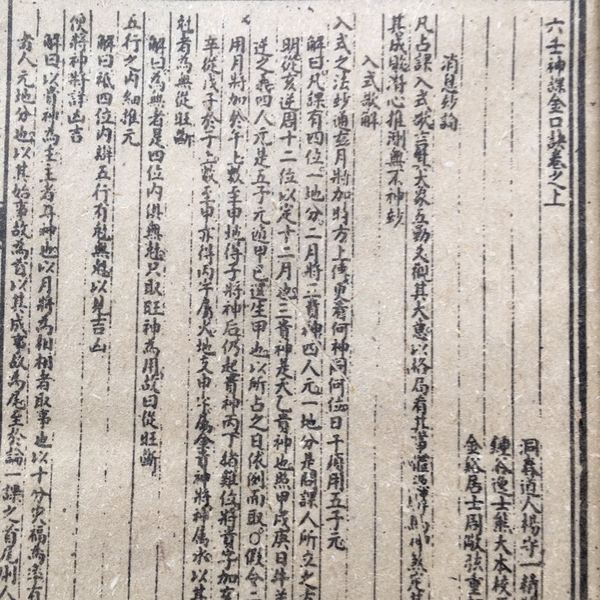 六壬神課金口訣卷之上
洞春道人楊守一精
鍾谷逸士熊大本校
金谿居士周儆弦重
消息妙論
凡占課入式
其成敗潛心推測無不神妙
入式歌解
入式之法妙通玄月將加時方上傳更看何神同何位日干須用五子元
解曰凡課有四位一地分二月將三貴神四人元一地分是問課人所立之
明從亥逆周十二位以定十二月也三貴神是天乙貴神也照甲戊庚日牛羊
逆之義四人元是五子元遁甲己還生甲也以所占之日依例而取○假令二
用月將加於午上數至申地得子將神后仍起貴神丙丁豬雞位將貴字加亥
辛從戊子於子上數至申亦得丙字屬火地支申字屬金貴神將神屬水以其
尅者為無從旺斷
解曰為無者是四位內俱無尅只取旺神為用故曰從旺斷
五行之內細推元
解曰祗四位內辨五行有尅無尅以見吉凶
便將神將詳凶吉
解曰以貴神為主主者尊神也以月將為相相者取事也以十分災福為
者人元地分也以其始事故為首以其成事故為尾至於論一課之首尾則人